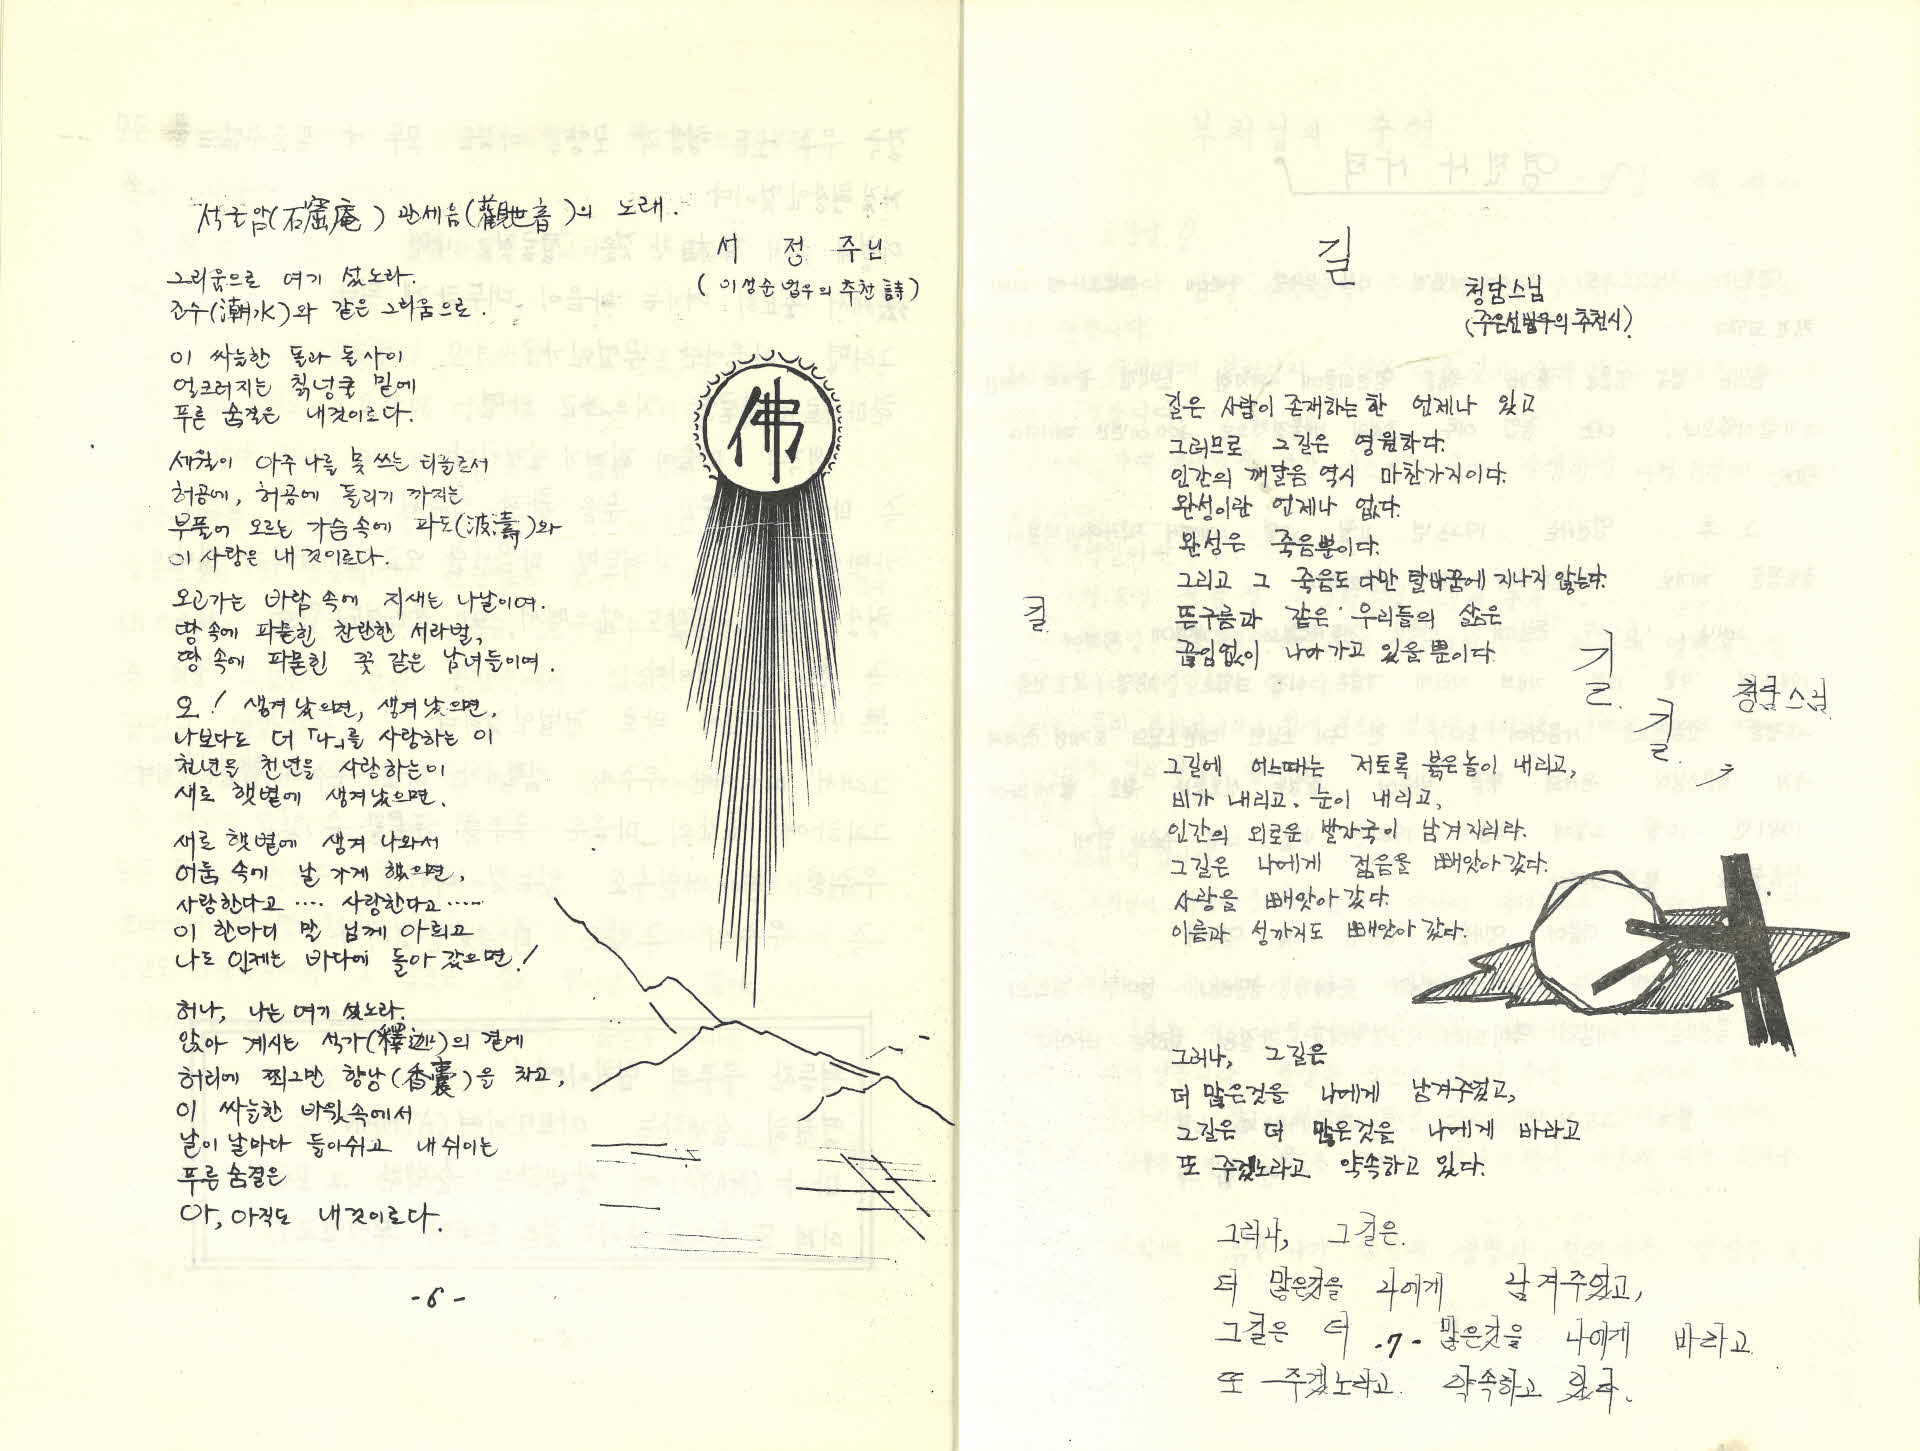 석굴암(石窟庵) 관세음(觀世音)의 노래.
서 정 주님
(이성순 법우의 추천 詩)
그리움으로 여기 섰노라.
조수(潮水)와 같은 그리움으로.
이 싸늘한 돌과 돌사이
얼크러지는 칡넝쿨 밑에
푸른 숨결은 내것이로다.
세월이 아주 나를 못 쓰는 티끌로서
허공에, 허공에 돌리기 까지는
부풀어 오르는 가슴속에 파도(波濤)와
이 사랑은 내 것이로다.
오고가는 바람 속에 지새는 나날이여.
땅속에 파묻힌 찬란한 서라벌,
땅 속에 파묻힌 꽃 같은 남녀들이여.
오! 생겨 났으면, 생겨 났으면,
나보다도 더 「나」를 사랑하는 이
천년을 천년을 사랑하는이
새로 햇볕에 생겨났으면.
새로 햇볕에 생겨 나와서
어둠 속에 날 가게 했으면,
사랑한다고 .... 사랑한다고 .....
이 한마디 말 님께 아뢰고
나도 인제는 바다에 돌아 갔으면!
허나, 나는 여기 섰노라.
앉아 계시는 석가(釋迦)의 곁에
허리에 쬐그만 향낭(香囊)을 차고,
이 싸늘한 바윗속에서
날이 날마다 들이쉬고 내쉬이는
푸른 숨결은
아, 아직도 내것이로다.
佛
-6-
길
청담스님
(주은선법우의 추천시)
길은 사람이 존재하는한 언제나 있고
그러므로 그길은 영원하다.
인간의 깨달음 역시 마찬가지이다.
완성이란 언제나 없다.
완성은 죽음뿐이다.
그리고 그 죽음도 다만 탈바꿈에 지나지 않는다.
뜬구름과 같은 우리들의 삶은
끊임없이 나아가고 있을 뿐이다.
길
길.
길.
청담스님
그길에 어느때는 저토록 붉은놀이 내리고,
비가 내리고. 눈이 내리고,
인간의 외로운 발자국이 남겨지리라.
그길은 나에게 젊음을 빼앗아 갔다.
사랑을 빼앗아 갔다.
이름과 성까지도 빼앗아 갔다.
그러나, 그길은
더 많은것을 나에게 남겨주었고,
그길은 더 많은것을 나에게 바라고
또 주겠노라고 약속하고 있다.
그러나, 그길은.
더 많은것을 나에게 남겨주었고,
그길은 더 많은것을 나에게 바라고
-7-
또 주겠노라고 약속하고 있다.